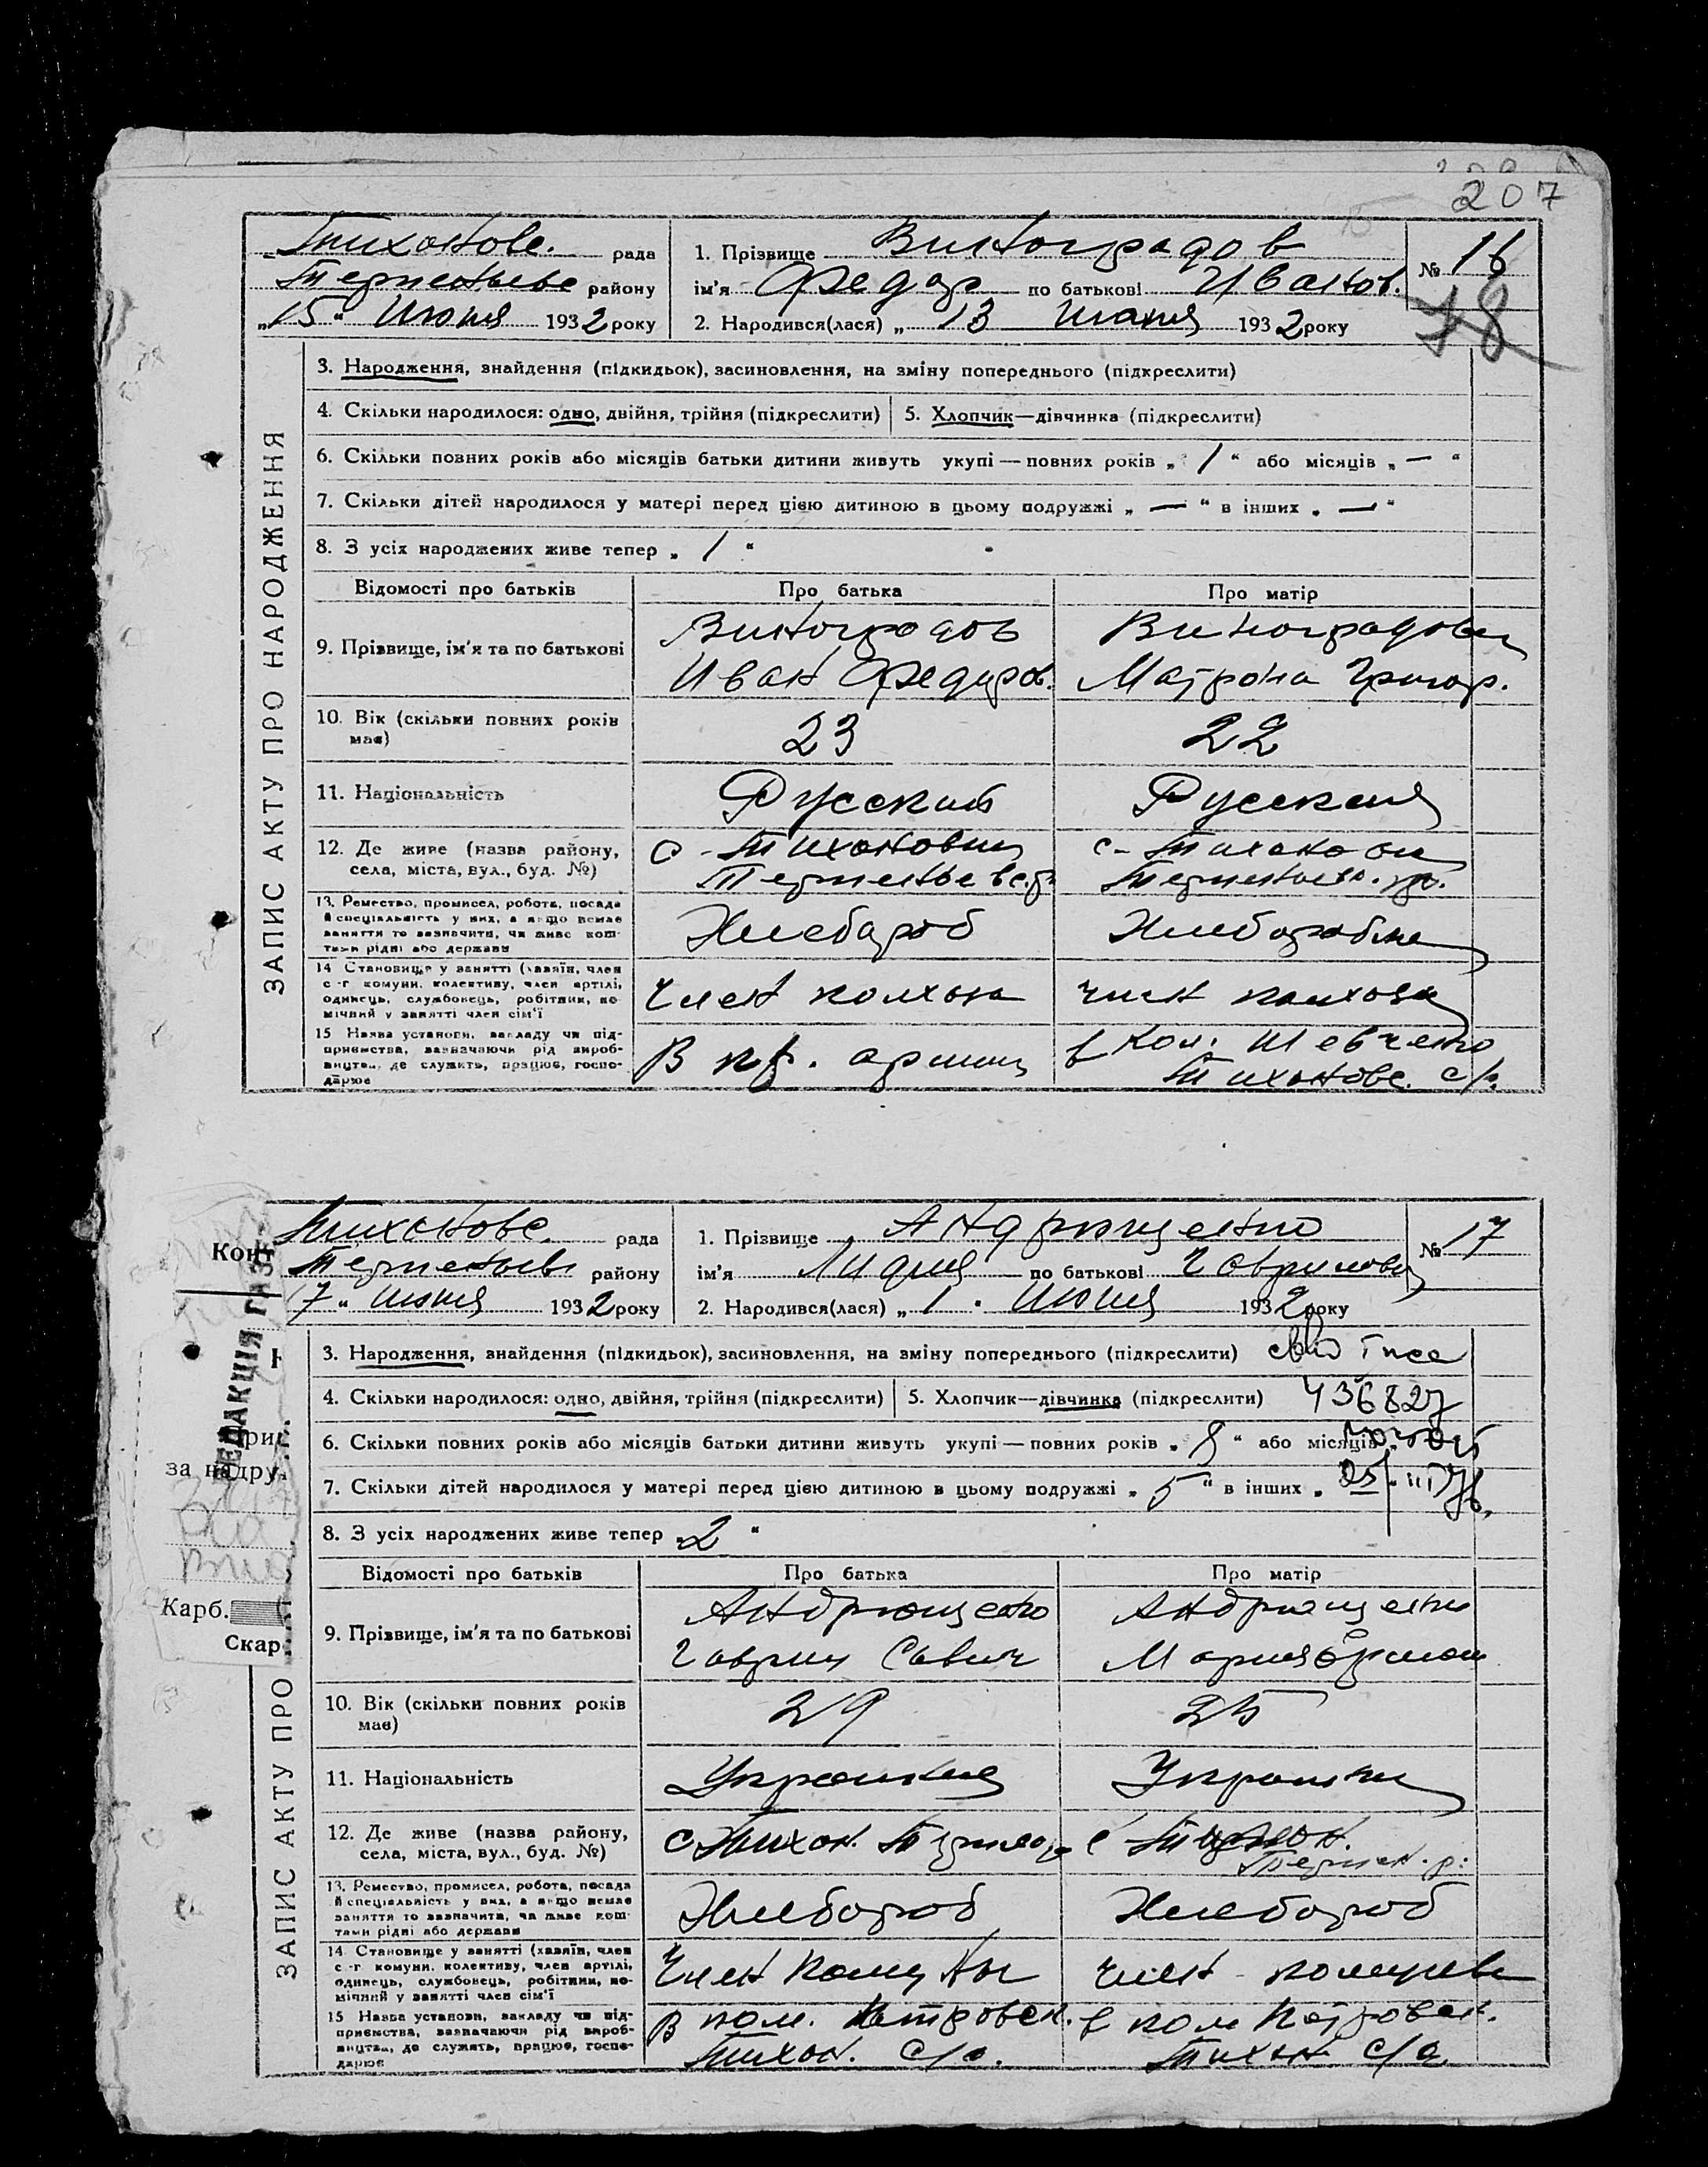 207
Тихонове. рада
Терпеньевс району
„15“ Июня 1932 року
1. Прізвище Виноградов
ім'я Федор по батькові Иванов.
2. Народився(лася) „ 13 Июня 1932 року
№ 16
78
ЗАПИС АКТУ ПРО НАРОДЖЕННЯ
3. Народження, знайдення (підкидьок), засиновлення, на зміну попереднього (підкреслити)
4. Скільки народилося: одно, двійня, трійня (підкреслити)
5. Хлопчик—дівчинка (підкреслити)
6. Скільки повних років або місяців батьки дитини живуть укупі — повних років „ 1 “ або місяців „ — “
7. Скільки дітей народилося у матері перед цією дитиною в цьому подружжі „ — “ в інших „ — “
8. З усіх народжених живе тепер „ 1 “
Відомості про батьків Про батька Про матір
9. Прізвище, ім'я та по батькові
Виноградов
Иван Федоров.
Виноградова
Матрона Григор.
10. Вік (скільки повних років
має)
23
22
11. Національність
Русский
Русская
12. Де живе (назва району,
села, міста, вул., буд. №)
с. Тихоновки
с. Тихоновки
13. Ремество, промисел, робота, посада
й спеціальність у них, а якщо немає
заняття то зазначити, чи живе кош-
тами рідні або держави
Хлебороб
Хлеборобка
14 Становище у занятті (хазяїн, член
с -г комуни, колективу, член артілі,
одинець, службовець, робітник, по-
мічний у занятті член сім'ї
Член колхоза
член колхоза
15 Назва установи, закладу чи під-
приємства, зазначаючи рід вироб-
ництва, де служить, працює, госпо-
дарює
В кр. армии
в кол. Шевченко
Тихонове. с/р.
Тихоновс. рада
Терпеньевс району
17 „ июня 1932 року
1. Прізвище Андрющенко
ім'я Лидия по батькові Гавриловна
2. Народився(лася) „ 1 . Июня 1932 року
№ 17
Конт
РЕДАКЦІЯ ГАЗ
за надру
Карб.
Скар
ЗАПИС АКТУ ПРО
3. Народження, знайдення (підкидьок), засиновлення, на зміну попереднього (підкреслити)
4. Скільки народилося: одно, двійня, трійня (підкреслити)
5. Хлопчик—дівчинка (підкреслити)
436827
6. Скільки повних років або місяців батьки дитини живуть укупі — повних років „ 8 “ або місяців
7. Скільки дітей народилося у матері перед цією дитиною в цьому подружжі „ 5 “ в інших „
8. З усіх народжених живе тепер „ 2 “
Відомості про батьків Про батька Про матір
9. Прізвище, ім'я та по батькові
Андрющенко
Гаврил Савич
Андрющенко
Мария
10. Вік (скільки повних років
має)
29
25
11. Національність
Украинец
Украинка
12. Де живе (назва району,
села, міста, вул., буд. №)
с Тихон.
с Тихон.
Терпен. р.
13. Ремество, промисел, робота, посада
й спеціальність у них, а якщо немає
заняття то зазначити, чи живе кош-
тами рідні або держави
Хлебороб
Хлебороб
14. Становище у занятті (хазяїн, член
с -г комуни, колективу, член артілі,
одинець, службовець, робітник, по-
мічний у занятті член сім'ї
Член Комуны
член комуны
15 Назва установи, закладу чи під-
приємства, зазначаючи рід вироб-
ництва, де служить, працює, госпо-
дарює
В ком. Петровск.
Тихон. с/р.
в ком Петровск.
Тихон с/р